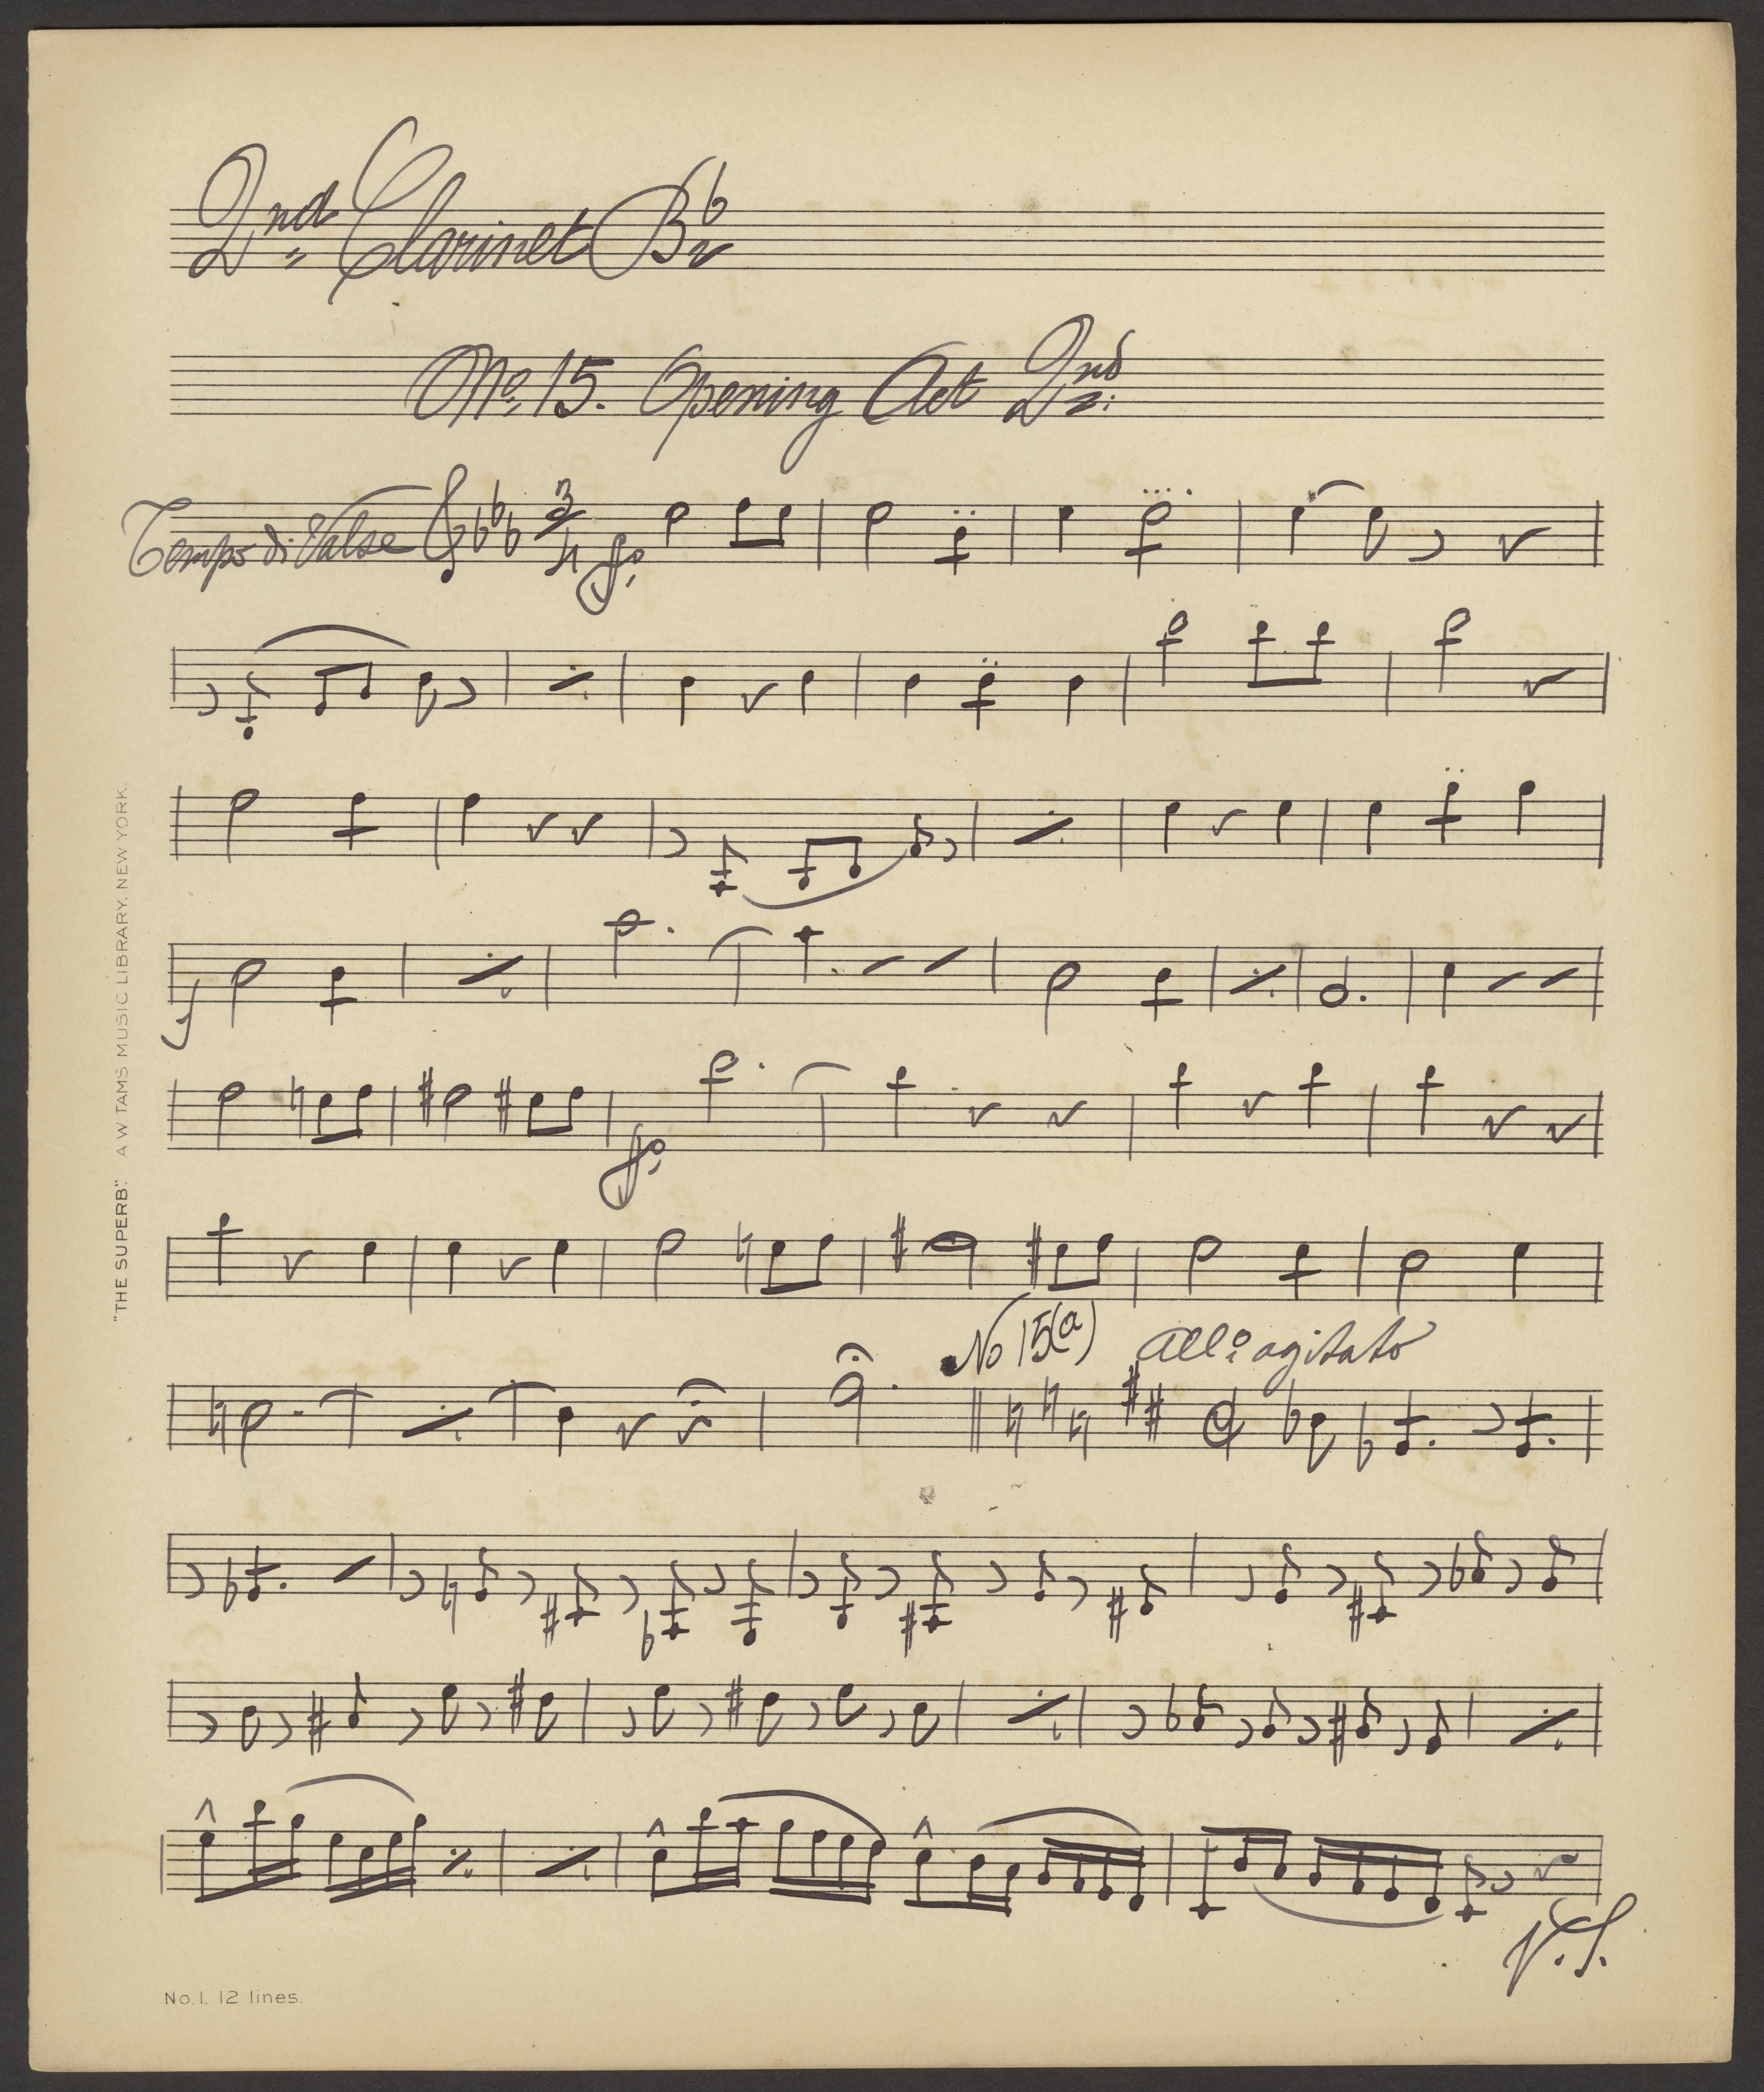 2nd Clarinet B♭
No. 15. Opening Act 2nd
Tempo di Valse 3/4
No 15(a) All.o agitato
V.S.
"THE SUPERB". A W TAMS MUSIC LIBRARY, NEW YORK.
No. 1. 12 lines.